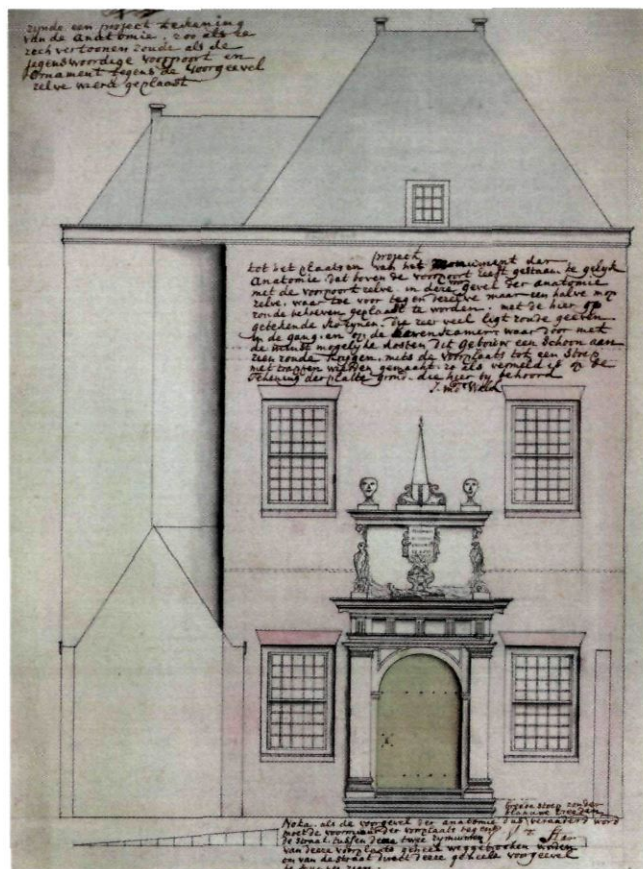 zynde een project teekening
van de anatomie. zoo als ze
zech vertoonen zoude als de
jegenswoordege voorpoort en
ornament tegens de voorgeevel
zelve wierd geplaast
project
tot het plaatsen van het monument der
Anatomie. dat boven de voorpoort heeft gestaan. te gelyk
met de voorpoort zelve. in deze gevel der anatomie
zelve. waar toe voor tegen dezelve maar een halve
zoude behoeven geplaast te worden. met de hier op
getekende kozynen. die zeer veel ligt zoude geeven
in de gang. en op de kamer waar door met
de minst mogelyke kosten dit gebouw een schoon aan
zien zoude krygen. mits de voorplaats tot een stoep
met trappen wierden gemaakt. zo als vermeld is op de
tekening der platte grond. die hier by behoord
Nota. als de voorgevel der anatomie dus veranderd word
moet de voormuur der voorplaats tegens
de straat. tussen deze twee zymuuren
van deeze voorplaats geheel weggebrooken worden
om van de straat direct deeze geheele voorgevel
te kunnen zien.
stoep zonder
blaauwe treeden